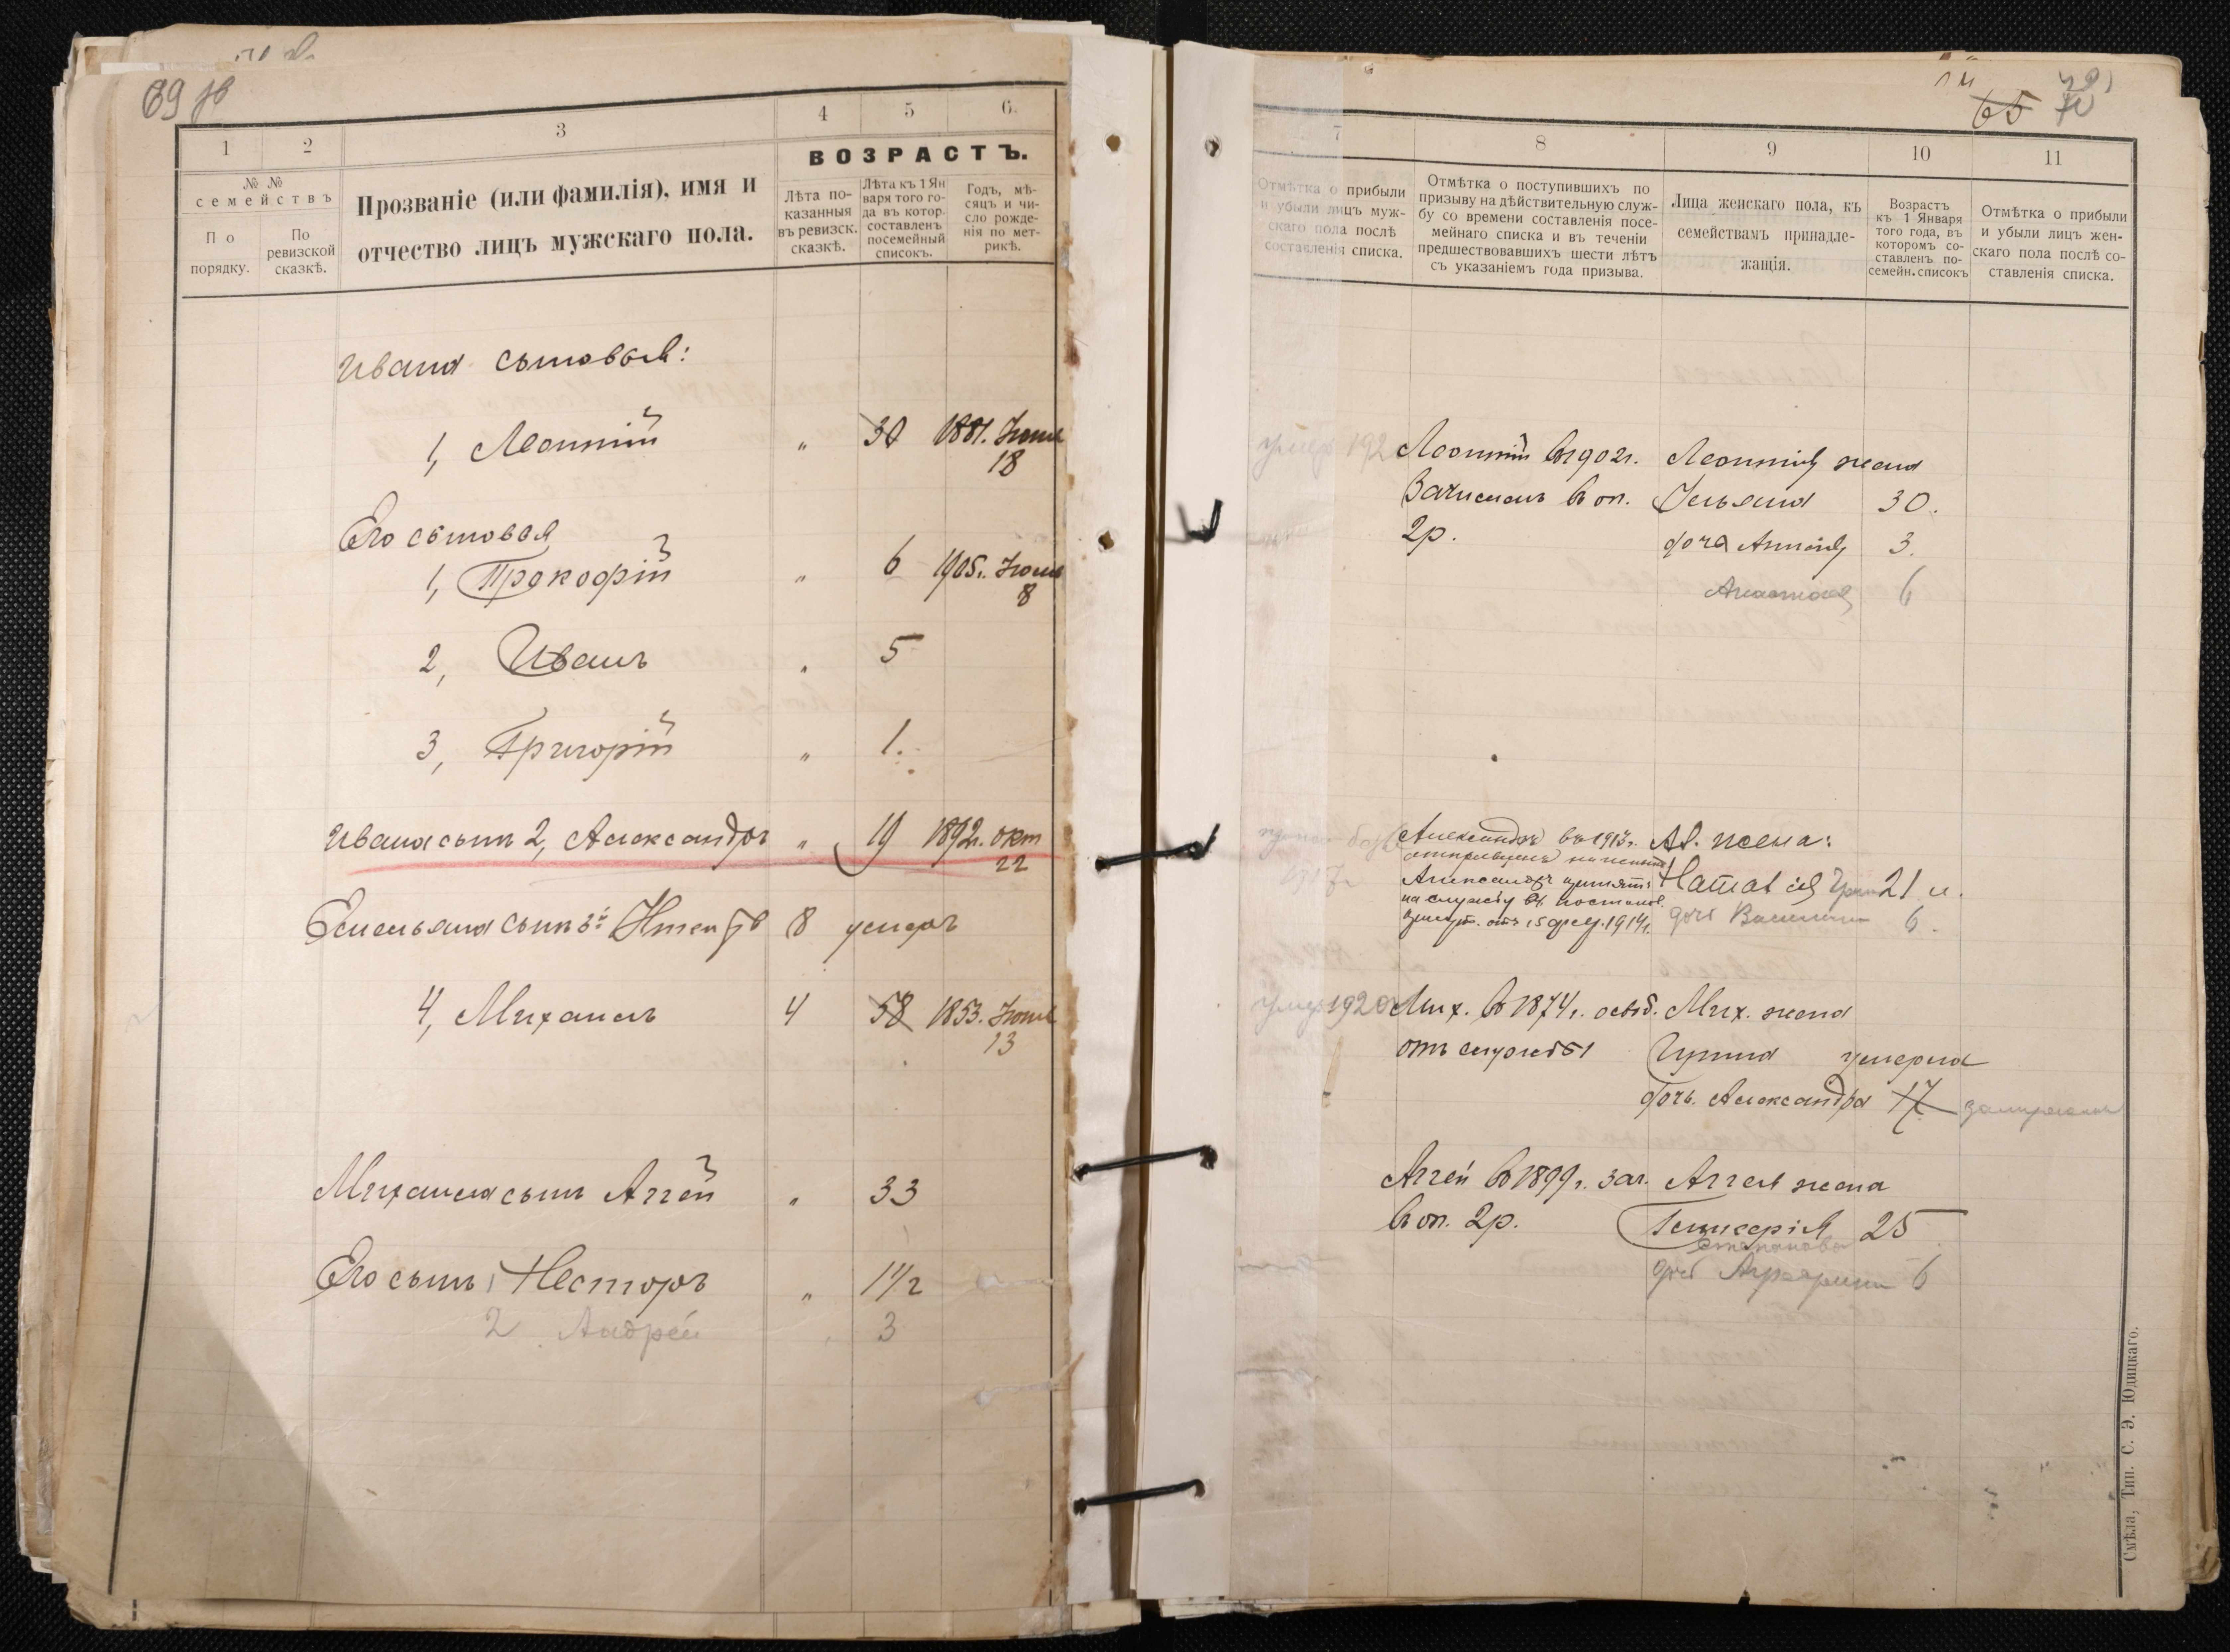 69
1
2
3
4
5
6.
№ №
семействъ
По
порядку.
По
ревизской
сказкѣ.
Прозваніе (или фамилія), имя и
отчество лицъ мужскаго пола.
ВОЗРАСТЪ.
Лѣта по-
казанныя
въ ревизск.
сказкѣ.
Лѣта къ 1 Ян
варя того го-
да въ котор.
составленъ
посемейный
списокъ.
Годъ, мѣ-
сяцъ и чи-
сло рожде-
нія по мет-
рикѣ.
Ивана сыновья:
1, Леонтій " 30 1881. Іюня
18
Его сыновья
1, Прокофій " 6 1905. Іюля
8
2, Иванъ " 5
3, Григорій " 1.
Ивана сынъ 2, Александръ " 19 1892г. окт
22
Емельяна сынъ 3й 8 умеръ
4, Михаилъ 4 58 1853. Іюня
13
Михаила сынъ Аггей " 33
Его сынъ 1 Несторъ " 1 1/2
2 Андрей 3
65 70
7
8
9
10
11
Отмѣтка о прибыли
и убыли лицъ муж-
скаго пола послѣ
составленія списка.
Отмѣтка о поступившихъ по
призыву на дѣйствительную служ-
бу со времени составленія посе-
мейнаго списка и въ теченіи
предшествовавшихъ шести лѣтъ
съ указаніемъ года призыва.
Лица женскаго пола, къ
семействамъ принадле-
жащія.
Возрастъ
къ 1 Января
того года, въ
которомъ со-
ставленъ по-
семейн. списокъ
Отмѣтка о прибыли
и убыли лицъ жен-
скаго пола послѣ со-
ставленія списка.
умеръ 192
Леонтій въ 1902г. Леонтія жена
Зачисленъ въ оп. Ульяна 30.
2р. дочь 3.
Анастасія 6
Александръ въ 1913г. Ал. жена:
Александръ принятъ Наталія 21
на службу
отъ 15 1914г. дочь 6.
умеръ 1920 Мих. въ 1874г. освоб. Мих. жена
отъ службы умерла
дочь. Александра 17
Аггей въ 1899г. зач. Аггея жена
въ оп. 2р. Гликерія 25
Степанова
дочь 6
Смѣла, Тип. С. Э. Юдицкаго.